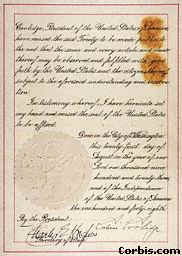 Coolidge, President of the United States of America,
have caused the said Treaty to be made public to
the end that the same and every article and clause
thereof may be observed and fulfilled with good
faith by the United States and the citizens thereof,
subject to the aforesaid understanding and reserva-
tion.
In testimony whereof, I have hereunto set
my hand and caused the seal of the United States
to be affixed.
Done at the City of Washington
this twenty-first day of
August in the year of our
Lord one thousand nine
hundred and twenty-three,
and of the Independence
of the United States of America
the one hundred and forty-eighth.
By the President:
Calvin Coolidge
Secretary of State.
Corbis.com